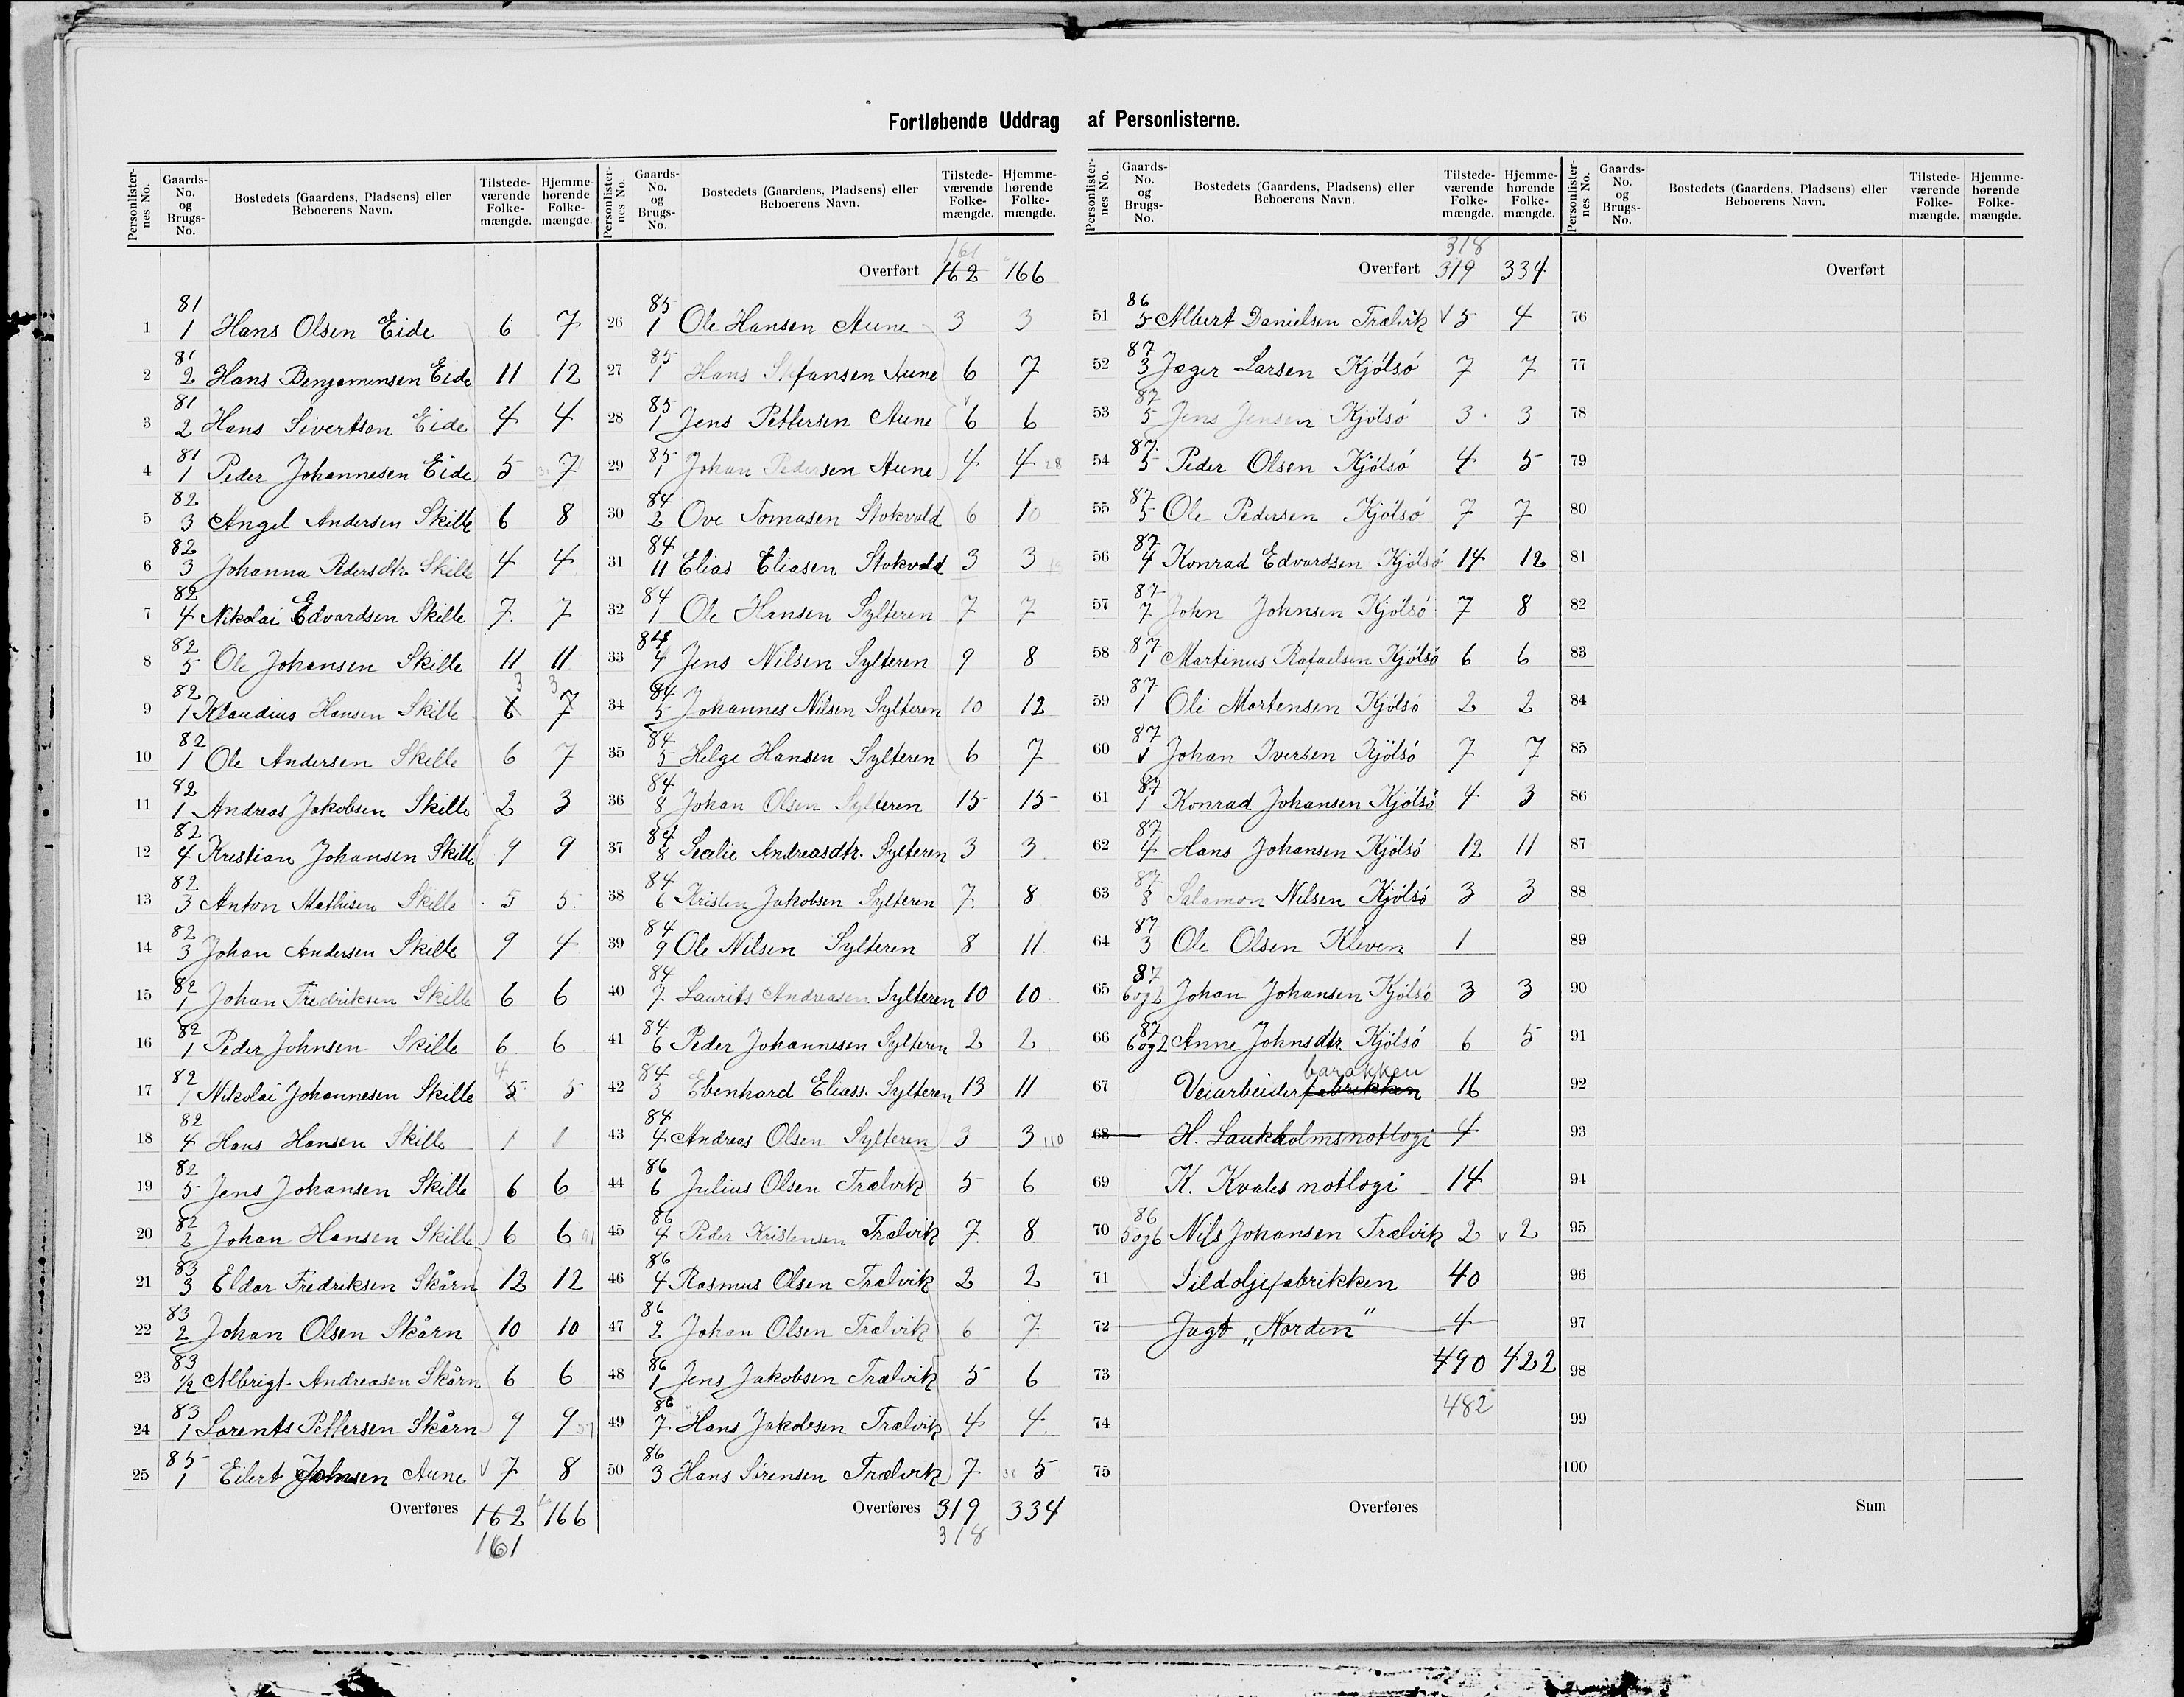 Fortløbende Uddrag af Personlisterne.
Personlister-nes No. Gaards-No. og Brugs-No. Bostedets (Gaardens, Pladsens) eller Beboerens Navn. Tilstede-værende Folke-mængde. Hjemme-hørende Folke-mængde.
1 81/1 Hans Olsen Eide 6 7
2 81/2 Hans Benjamensen Eide 11 12
3 81/2 Hans Sivertsen Eide 4 4
4 81/1 Peder Johannesen Eide 5 7
5 82/3 Angel Andersen Skille 6 8
6 82/3 Johanna Pedersdtr. Skille 4 4
7 82/4 Nikolai Edvardsen Skille 7 7
8 82/5 Ole Johansen Skille 11 11
9 82/1 Klaudius Hansen Skille 6 3 7 3
10 82/1 Ole Andersen Skille 6 7
11 82/1 Andreas Jakobsen Skille 2 3
12 82/4 Kristian Johansen Skille 9 9
13 82/3 Anton Mathisen Skille 5 5
14 82/3 Johan Andersen Skille 9 4
15 82/1 Johan Fredriksen Skille 6 6
16 82/1 Peder Johnsen Skille 6 6
17 82/1 Nikolai Johannesen Skille 5 4 5
18 82/4 Hans Hansen Skille 1 1
19 82/5 Jens Johansen Skille 6 6
20 82/2 Johan Hansen Skille 6 6 91
21 83/3 Eldar Fredriksen Skårn 12 12
22 83/2 Johan Olsen Skårn 10 10
23 83/1/2 Albrigt Andreasen Skårn 6 6
24 83/1 Lorents Pettersen Skårn 9 9
25 85/1 Eilert Johnsen Aune 7 8
Overføres 162 166
161
Personlister-nes No. Gaards-No. og Brugs-No. Bostedets (Gaardens, Pladsens) eller Beboerens Navn. Tilstede-værende Folke-mængde. Hjemme-hørende Folke-mængde.
161
Overført 162 166
26 85/1 Ole Hansen Aune 3 3
27 85/1 Hans Stefansen Aune 6 7
28 85/1 Jens Pettersen Aune 6 6
29 85/1 Johan Pedersen Aune 4 4 28
30 84/2 Ove Tomasen Stokvold 6 10
31 84/11 Elias Eliasen Stokvold 3 3
32 84/1 Ole Hansen Sylteren 7 7
33 84/4 Jens Nilsen Sylteren 9 8
34 84/5 Johannes Nilsen Sylteren 10 12
35 84/5 Helge Hansen Sylteren 6 7
36 84/8 Johan Olsen Sylteren 15 15
37 84/8 Secelie Andreasdtr. Sylteren 3 3
38 84/6 Kristen Jakobsen Sylteren 7 8
39 84/9 Ole Nilsen Sylteren 8 11
40 84/7 Laurits Andreasen Sylteren 10 10
41 84/6 Peder Johannesen Sylteren 2 2
42 84/3 Ebenhard Eliass. Sylteren 13 11
43 84/4 Andreas Olsen Sylteren 3 3 110
44 86/6 Julius Olsen Trælvik 5 6
45 86/4 Peder Kristensen Trælvik 7 8
46 86/4 Rasmus Olsen Trælvik 2 2
47 86/2 Johan Olsen Trælvik 6 7
48 86/1 Jens Jakobsen Trælvik 5 6
49 86/7 Hans Jakobsen Trælvik 4 4
50 86/3 Hans Sørensen Trælvik 7 5
Overføres 319 334
318
Personlister-nes No. Gaards-No. og Brugs-No. Bostedets (Gaardens, Pladsens) eller Beboerens Navn. Tilstede-værende Folke-mængde. Hjemme-hørende Folke-mængde.
318
Overført 319 334
51 86/5 Albert Danielsen Trælvik 5 4
52 87/3 Jæger Larsen Kjölsö 7 7
53 87/5 Jens Jensen Kjölsö 3 3
54 87/5 Peder Olsen Kjölsö 4 5
55 87/5 Ole Pedersen Kjölsö 7 7
56 87/4 Konrad Edvardsen Kjölsö 14 12
57 87/7 John Johnsen Kjölsö 7 8
58 87/1 Martinus Rafaelsen Kjölsö 6 6
59 87/1 Ole Mortensen Kjölsö 2 2
60 87/1 Johan Iversen Kjölsö 7 7
61 87/1 Konrad Johansen Kjölsö 4 3
62 87/4 Hans Johansen Kjölsö 12 11
63 87/8 Salamon Nilsen Kjölsö 3 3
64 87/3 Ole Olsen Kleven 1
65 87/6 og 2 Johan Johansen Kjölsö 3 3
66 87/6 og 2 Anne Johnsdtr. Kjölsö 6 5
67 Veiarbeiderfabrikken barakken 16
68 H. Laukholmsnotlogi 4
69 K. Kvales notlogi 14
70 86/5 og 6 Nils Johansen Trælvik 2 2
71 Sildoljefabrikken 40
72 Jagt „Norden" 4
73 490 422
74 482
75
Overføres
Personlister-nes No. Gaards-No. og Brugs-No. Bostedets (Gaardens, Pladsens) eller Beboerens Navn. Tilstede-værende Folke-mængde. Hjemme-hørende Folke-mængde.
Overført
76
77
78
79
80
81
82
83
84
85
86
87
88
89
90
91
92
93
94
95
96
97
98
99
100
Sum